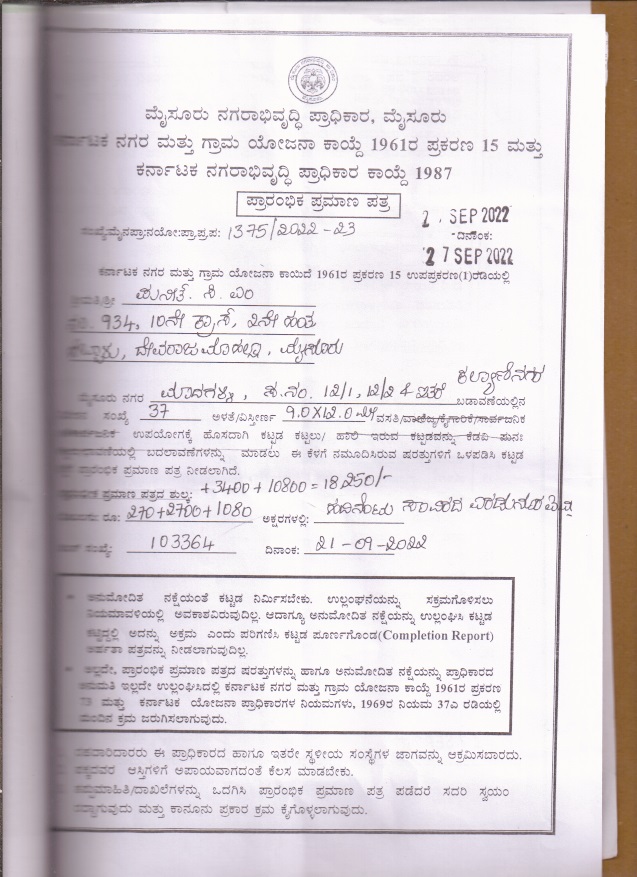 ಮೈಸೂರು ನಗರಾಭಿವೃದ್ಧಿ ಪ್ರಾಧಿಕಾರ, ಮೈಸೂರು
ಕರ್ನಾಟಕ ನಗರ ಮತ್ತು ಗ್ರಾಮ ಯೋಜನಾ ಕಾಯ್ದೆ 1961ರ ಪ್ರಕರಣ 15 ಮತ್ತು
ಕರ್ನಾಟಕ ನಗರಾಭಿವೃದ್ಧಿ ಪ್ರಾಧಿಕಾರ ಕಾಯ್ದೆ 1987
ಪ್ರಾರಂಭಿಕ ಪ್ರಮಾಣ ಪತ್ರ
SEP 2022
ಸಂಖ್ಯೆ:ಮೈನಪ್ರಾ:ನಯೋ:ಪ್ರಾ.ಪ್ರ.ಪ: 1375/2022-23 ದಿನಾಂಕ:
27 SEP 2022
ಕರ್ನಾಟಕ ನಗರ ಮತ್ತು ಗ್ರಾಮ ಯೋಜನಾ ಕಾಯಿದೆ 1961ರ ಪ್ರಕರಣ 15 ಉಪಪ್ರಕರಣ(1)ರಡಿಯಲ್ಲಿ
ಶ್ರೀಮತಿ/ಶ್ರೀ ಪುನೀತ್. ಸಿ. ಎಂ
934, 10ನೇ ಕ್ರಾಸ್, 2ನೇ ಹಂತ
ದೇವರಾಜ ಮೊಹಲ್ಲಾ, ಮೈಸೂರು
ಕಲ್ಯಾಣಿನಗರ
ಮೈಸೂರು ನಗರ ಮಾದಗಳ್ಳಿ, ಸ.ನಂ. 12/1, 12/2 & ಇತರೆ ಬಡಾವಣೆಯಲ್ಲಿನ
ಸಂಖ್ಯೆ 37 ಅಳತೆ/ವಿಸ್ತೀರ್ಣ 9.0X12.0 ವಸತಿ/ವಾಣಿಜ್ಯ/ಕೈಗಾರಿಕೆ/ಸಾರ್ವಜನಿಕ
ಸಾರ್ವಜನಿಕ ಉಪಯೋಗಕ್ಕೆ ಹೊಸದಾಗಿ ಕಟ್ಟಡ ಕಟ್ಟಲು/ ಹಾಲಿ ಇರುವ ಕಟ್ಟಡವನ್ನು ಕೆಡವಿ ಪುನಃ
ಬದಲಾವಣೆಗಳನ್ನು ಮಾಡಲು ಈ ಕೆಳಗೆ ನಮೂದಿಸಿರುವ ಷರತ್ತುಗಳಿಗೆ ಒಳಪಡಿಸಿ ಕಟ್ಟಡ
ಪ್ರಾರಂಭಿಕ ಪ್ರಮಾಣ ಪತ್ರ ನೀಡಲಾಗಿದೆ.
ಪ್ರಮಾಣ ಪತ್ರದ ಶುಲ್ಕ: +3400+10800=18250/-
ರೂ: 270+2700+1080 ಅಕ್ಷರಗಳಲ್ಲಿ: ಹದಿನೆಂಟು ಸಾವಿರದ ಎರಡುನೂರ ಐವತ್ತು
ಸಂಖ್ಯೆ: 103364 ದಿನಾಂಕ: 21-09-2022
ಅನುಮೋದಿತ ನಕ್ಷೆಯಂತೆ ಕಟ್ಟಡ ನಿರ್ಮಿಸಬೇಕು. ಉಲ್ಲಂಘನೆಯನ್ನು ಸಕ್ರಮಗೊಳಿಸಲು
ನಿಯಮಾವಳಿಯಲ್ಲಿ ಅವಕಾಶವಿರುವುದಿಲ್ಲ. ಆದಾಗ್ಯೂ ಅನುಮೋದಿತ ನಕ್ಷೆಯನ್ನು ಉಲ್ಲಂಘಿಸಿ ಕಟ್ಟಡ
ಕಟ್ಟಿದ್ದಲ್ಲಿ ಅದನ್ನು ಅಕ್ರಮ ಎಂದು ಪರಿಗಣಿಸಿ ಕಟ್ಟಡ ಪೂರ್ಣಗೊಂಡ(Completion Report)
ಅರ್ಹತಾ ಪತ್ರವನ್ನು ನೀಡಲಾಗುವುದಿಲ್ಲ.
ಅಲ್ಲದೇ, ಪ್ರಾರಂಭಿಕ ಪ್ರಮಾಣ ಪತ್ರದ ಷರತ್ತುಗಳನ್ನು ಹಾಗೂ ಅನುಮೋದಿತ ನಕ್ಷೆಯನ್ನು ಪ್ರಾಧಿಕಾರದ
ಅನುಮತಿ ಇಲ್ಲದೇ ಉಲ್ಲಂಘಿಸಿದಲ್ಲಿ ಕರ್ನಾಟಕ ನಗರ ಮತ್ತು ಗ್ರಾಮ ಯೋಜನಾ ಕಾಯ್ದೆ 1961ರ ಪ್ರಕರಣ
73 ಮತ್ತು ಕರ್ನಾಟಕ ಯೋಜನಾ ಪ್ರಾಧಿಕಾರಗಳ ನಿಯಮಗಳು, 1969ರ ನಿಯಮ 37ಎ ರಡಿಯಲ್ಲಿ
ಮುಂದಿನ ಕ್ರಮ ಜರುಗಿಸಲಾಗುವುದು.
ಈ ಪ್ರಾಧಿಕಾರದ ಹಾಗೂ ಇತರೇ ಸ್ಥಳೀಯ ಸಂಸ್ಥೆಗಳ ಜಾಗವನ್ನು ಆಕ್ರಮಿಸಬಾರದು.
ಪಕ್ಕದವರ ಆಸ್ತಿಗಳಿಗೆ ಅಪಾಯವಾಗದಂತೆ ಕೆಲಸ ಮಾಡಬೇಕು.
ತಪ್ಪುಮಾಹಿತಿ/ದಾಖಲೆಗಳನ್ನು ಒದಗಿಸಿ ಪ್ರಾರಂಭಿಕ ಪ್ರಮಾಣ ಪತ್ರ ಪಡೆದರೆ ಸದರಿ ಸ್ವಯಂ
ರದ್ದಾಗುವುದು ಮತ್ತು ಕಾನೂನು ಪ್ರಕಾರ ಕ್ರಮ ಕೈಗೊಳ್ಳಲಾಗುವುದು.